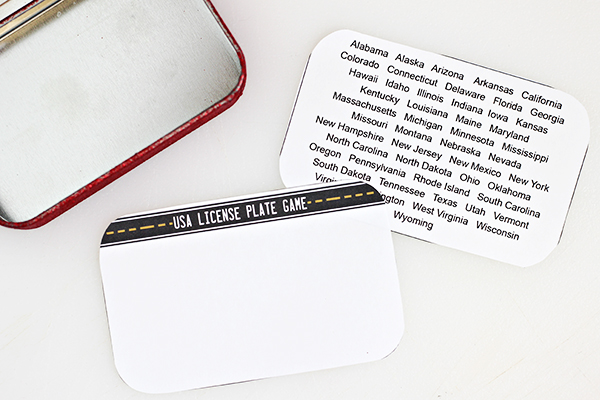 Alabama Alaska Arizona Arkansas California
Colorado Connecticut Delaware Florida Georgia
Hawaii Idaho Illinois Indiana Iowa Kansas
Kentucky Louisiana Maine Maryland
Massachusetts Michigan Minnesota Mississippi
Missouri Montana Nebraska Nevada
New Hampshire New Jersey New Mexico New York
North Carolina North Dakota Ohio Oklahoma
Oregon Pennsylvania Rhode Island South Carolina
South Dakota Tennessee Texas Utah Vermont
West Virginia Wisconsin
Wyoming
USA LICENSE PLATE GAME